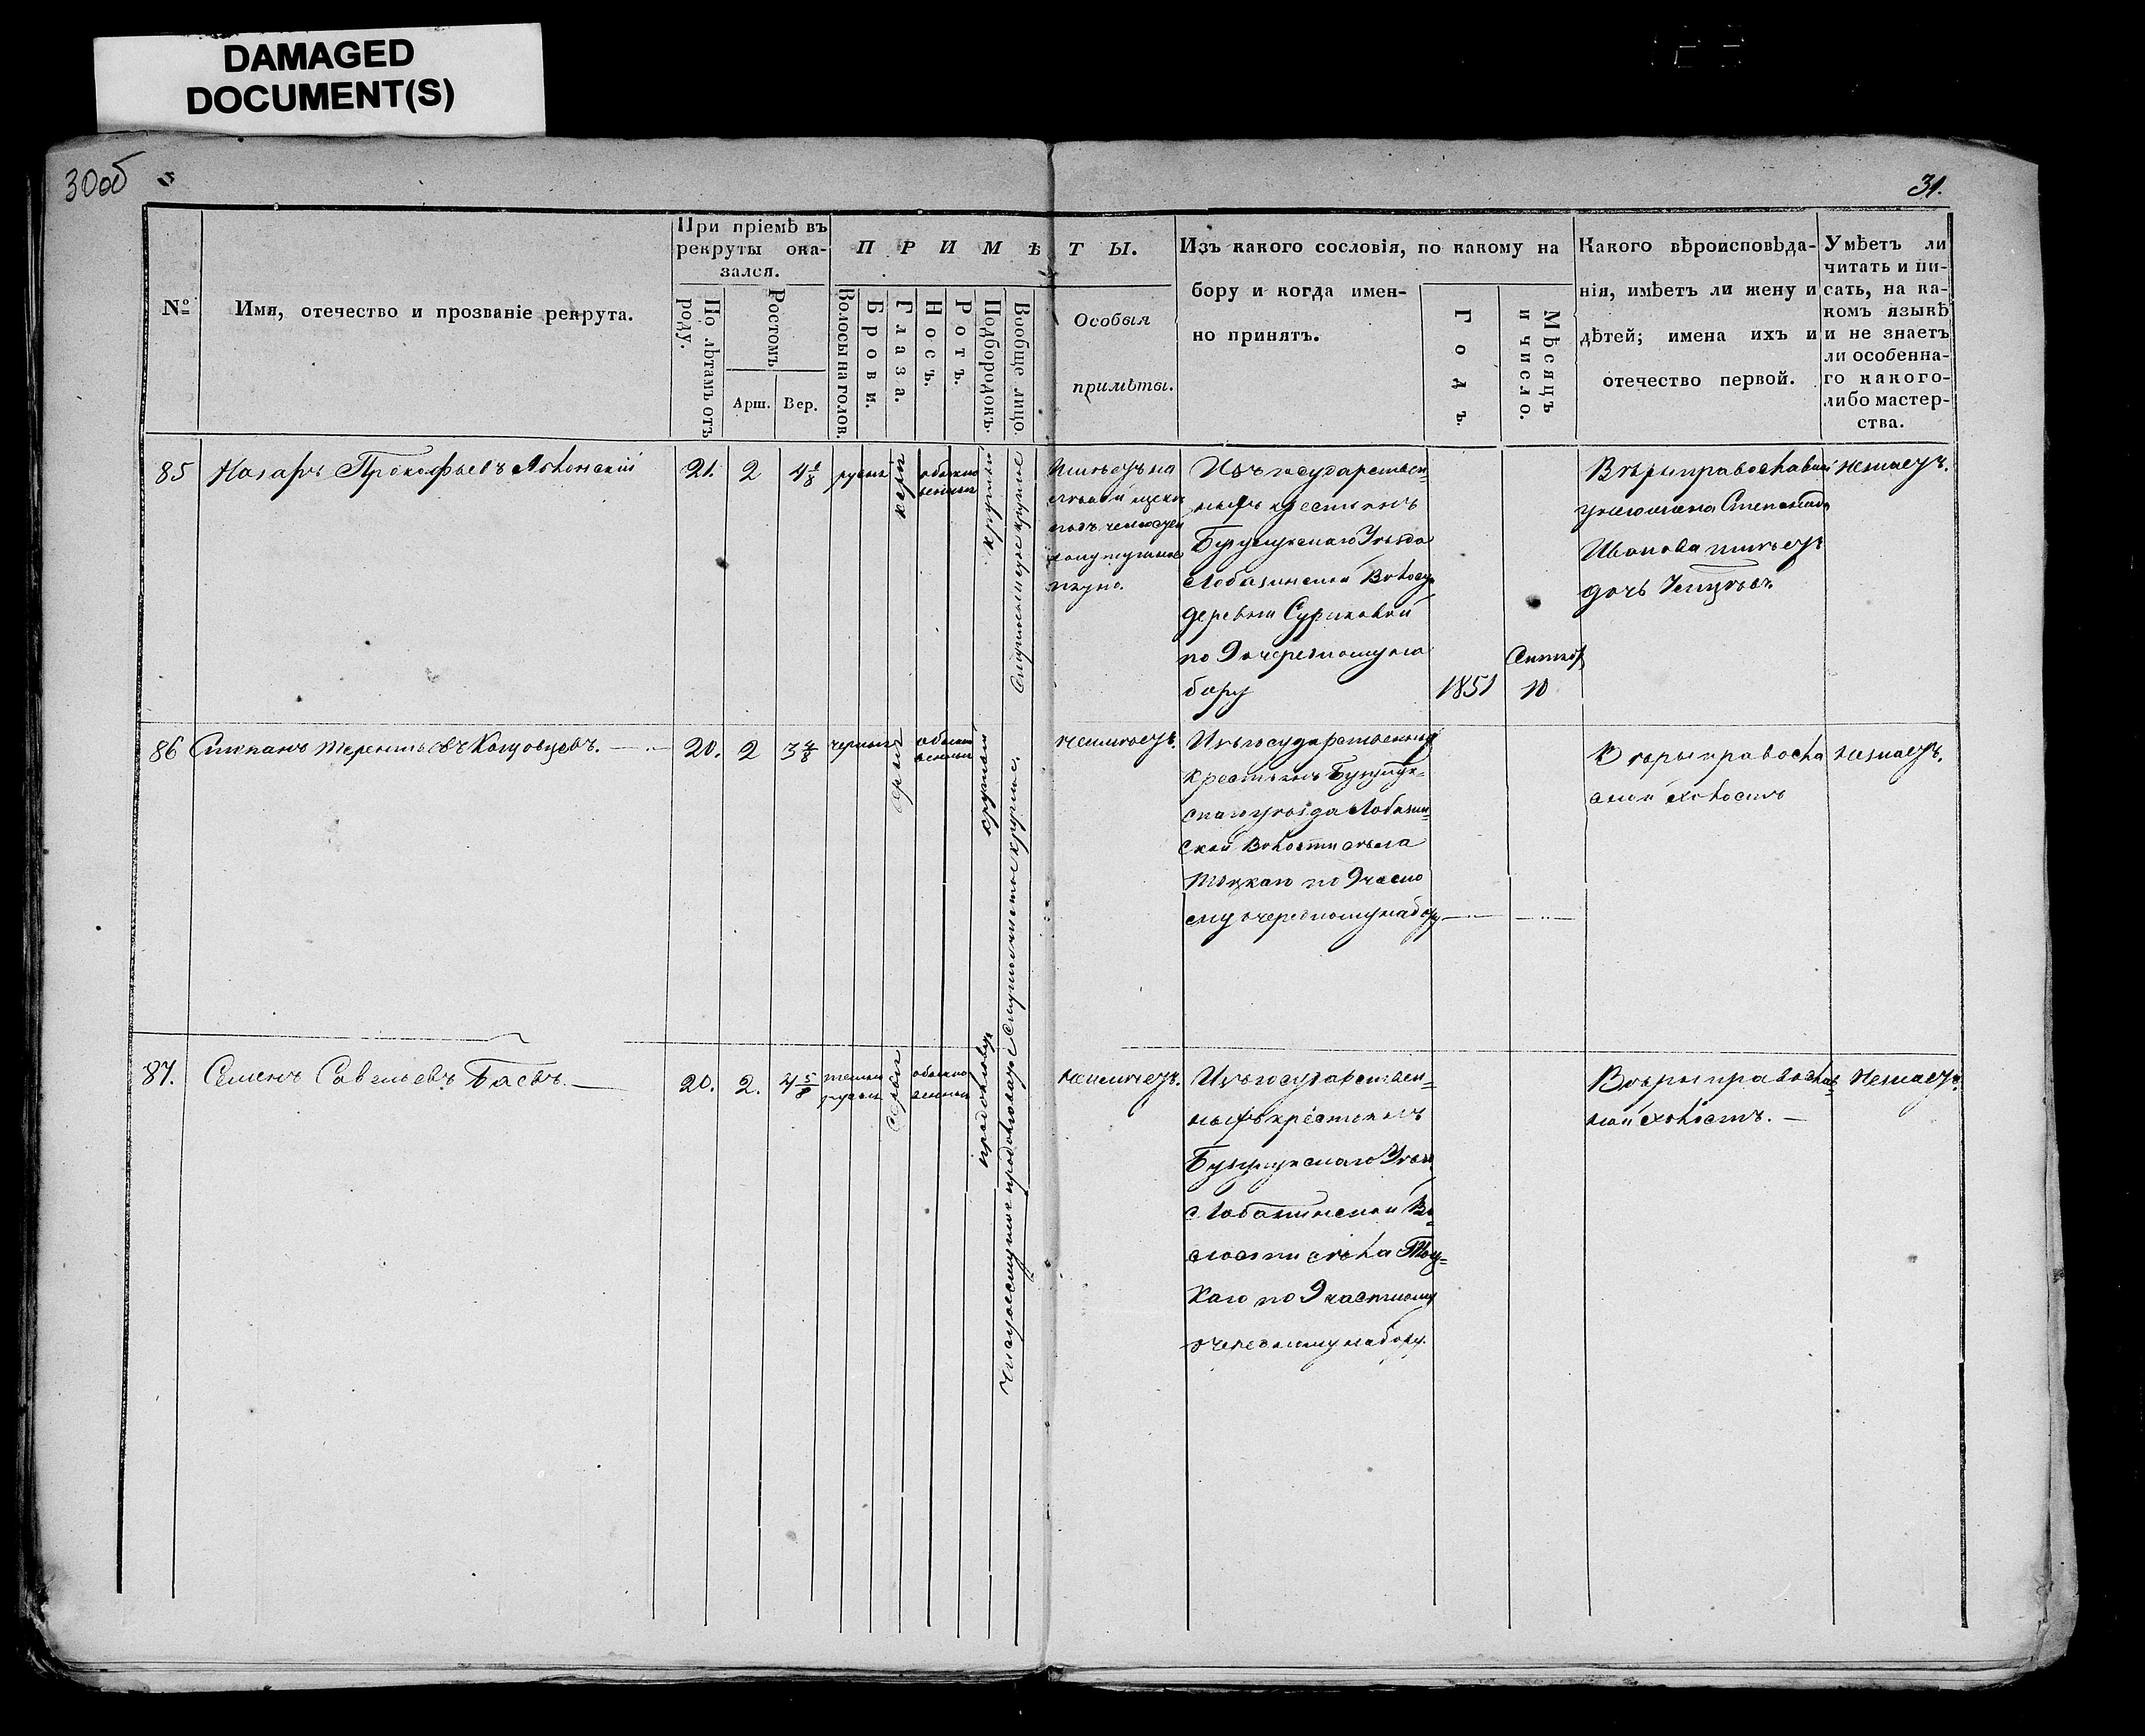 DAMAGED
DOCUMENT(S)
30об
31.
№
Имя, отечество и прозваніе рекрута.
При пріемѣ въ
рекруты ока-
зался.
По лѣтамъ отъ
роду.
Ростомъ
Арш.
Вер.
П Р И М Ѣ Т Ы.
Волосы на голов.
Брови.
Глаза.
Носъ.
Ротъ.
Подбородокъ.
Вообще лицо.
Особыя
примѣты.
Изъ какого сословія, по какому на
бору и когда имен-
но принятъ.
Годъ.
Мѣсяцъ
и число.
Какого вѣроисповѣда-
нія, имѣетъ ли жену и
дѣтей; имена ихъ и
отечество первой.
Умѣетъ ли
читать и пи-
сать, на ка-
комъ языкѣ
и не знаетъ
ли особенна-
го какого-
либо мастер-
ства.
85
Назаръ Прокофьевъ
21.
2
4 1/8
русыя
карія
обыкно
венныя
круглый
круглое
Имѣетъ на
Изъ государствен=
ныхъ крестьянъ
Бузулукскаго Уѣзда
Лобазинской Волос.
деревни Суриковой
по 9 очередному на
бору
1851
10
Вѣры православной
у него жена Степанида
Иванова имѣетъ
дочь
незнаетъ.
86
Степанъ Терентьевъ
20.
2
3 4/8
черныя
сѣрыя
обыкно
венныя
круглый
чистое круглое.
неимѣетъ.
Изъ государственныхъ
крестьянъ Бузулук=
скаго уѣзда Лобазин=
ской Волости села
Тоцкаго по 9 частно
му очередному набору
Вѣры правосла
вной холостъ
незнаетъ.
87.
Семенъ Савельевъ Баевъ.
20.
2.
4 5/8
темно
русыя
сѣрыя
обыкно
венныя
неимѣетъ.
Изъ государствен=
ныхъ крестьянъ
Бузулукскаго Уѣзд
Лобазинской Во=
лости села Тоц=
каго по 9 частному
очередному набору.
Вѣры православ=
ной холостъ.
Незнаетъ.